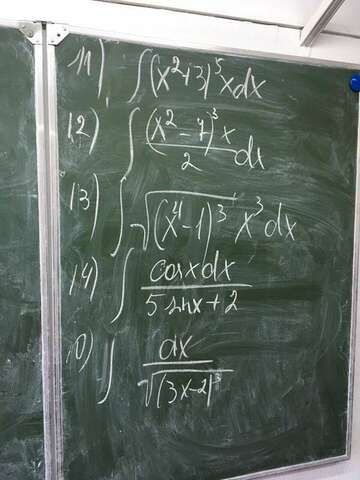 11) ∫(x²+3)⁵xdx
12) ∫ (x²-7)³x / 2 dx
13) ∫ √(x⁴-1)³ x³dx
14) ∫ cosxdx / 5sinx+2
0) ∫ dx / √(3x-2)³